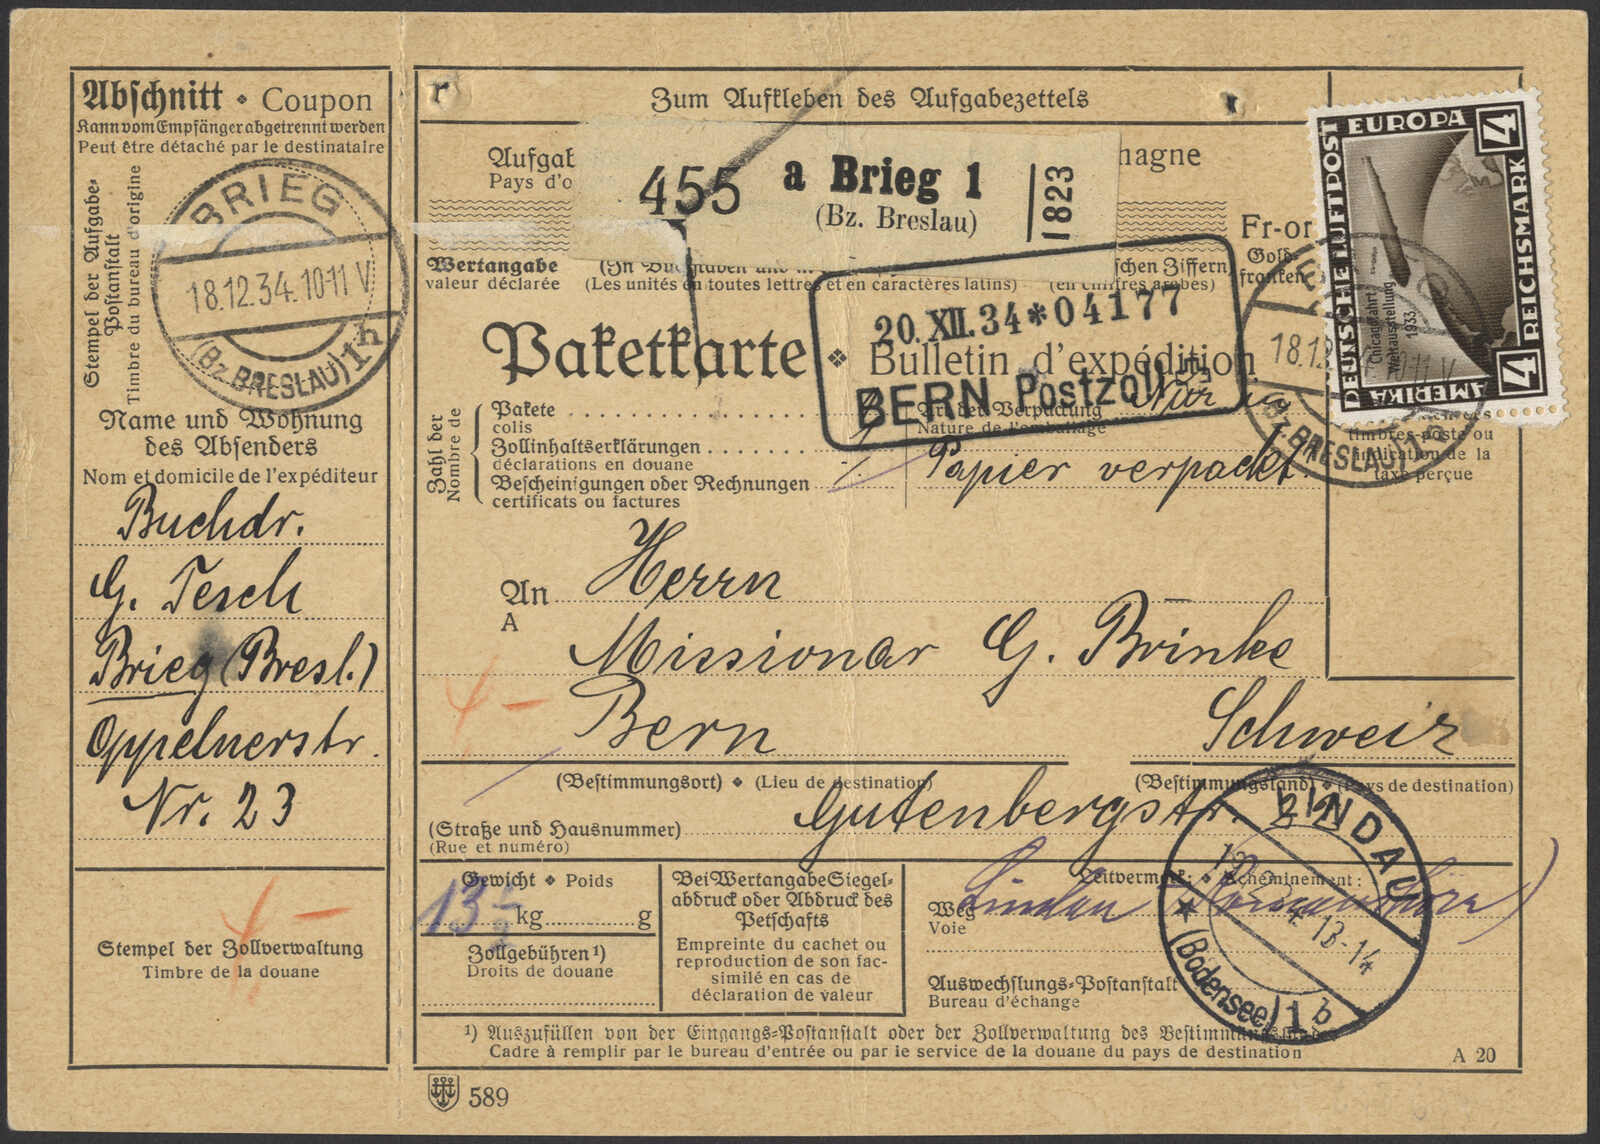 Abschnitt ❖ Coupon
Kann vom Empfänger abgetrennt werden
Peut être détaché par le destinataire
Stempel der Aufgabe-
Postanstalt
Timbre du bureau d'origine
BRIEG
18.12.34.10-11 V
(Bz. BRESLAU) 1h
Name und Wohnung
des Absenders
Nom et domicile de l'expéditeur
Buchdr.
G. Tesch
Brieg (Bresl.)
Oppelnerstr.
Nr. 23
4 –
Stempel der Zollverwaltung
Timbre de la douane
Zum Aufkleben des Aufgabezettels
Aufgab
Pays d'o
magne
455
a Brieg 1
(Bz. Breslau)
1823
Fr-or
Gold-
franken
Wertangabe
valeur déclarée
(Les unités en toutes lettres et en caractères latins)
schen Ziffern
(en chiffres arabes)
20. XII. 34*04177
BERN Postzoll
Paketkarte ❖ Bulletin d'expédition
Zahl der
Nombre de
Pakete
colis
Zollinhaltserklärungen
déclarations en douane
Bescheinigungen oder Rechnungen
certificats ou factures
Art der Verpackung
Nature de l'emballage
Nur in
Papier verpackt.
DEUTSCHE LUFTPOST
EUROPA
AMERIKA
4 REICHSMARK 4
Chicagofahrt
Weltausstellung
1933
18.12
10-11 V
BRESLAU)
timbres-poste ou
indication de la
taxe perçue
An
A
Herrn
Missionar G. Brinke
4 –
Bern
Schweiz
(Bestimmungsort) ❖ (Lieu de destination)
(Bestimmungsland) ❖ (Pays de destination)
(Straße und Hausnummer)
(Rue et numéro)
Gutenbergstr. 22
Gewicht ❖ Poids
13 ½ kg
g
Zollgebühren ¹)
Droits de douane
Bei Wertangabe Siegel-
abdruck oder Abdruck des
Petschafts
Empreinte du cachet ou
reproduction de son fac-
similé en cas de
déclaration de valeur
Leitvermerk: ❖ Acheminement:
Weg
Voie
Lindau
Auswechslungs-Postanstalt
Bureau d'échange
LINDAU
4 13-14
(Bodensee) 1 b
¹) Auszufüllen von der Eingangs-Postanstalt oder der Zollverwaltung des Bestimmungslandes
Cadre à remplir par le bureau d'entrée ou par le service de la douane du pays de destination
A 20
589